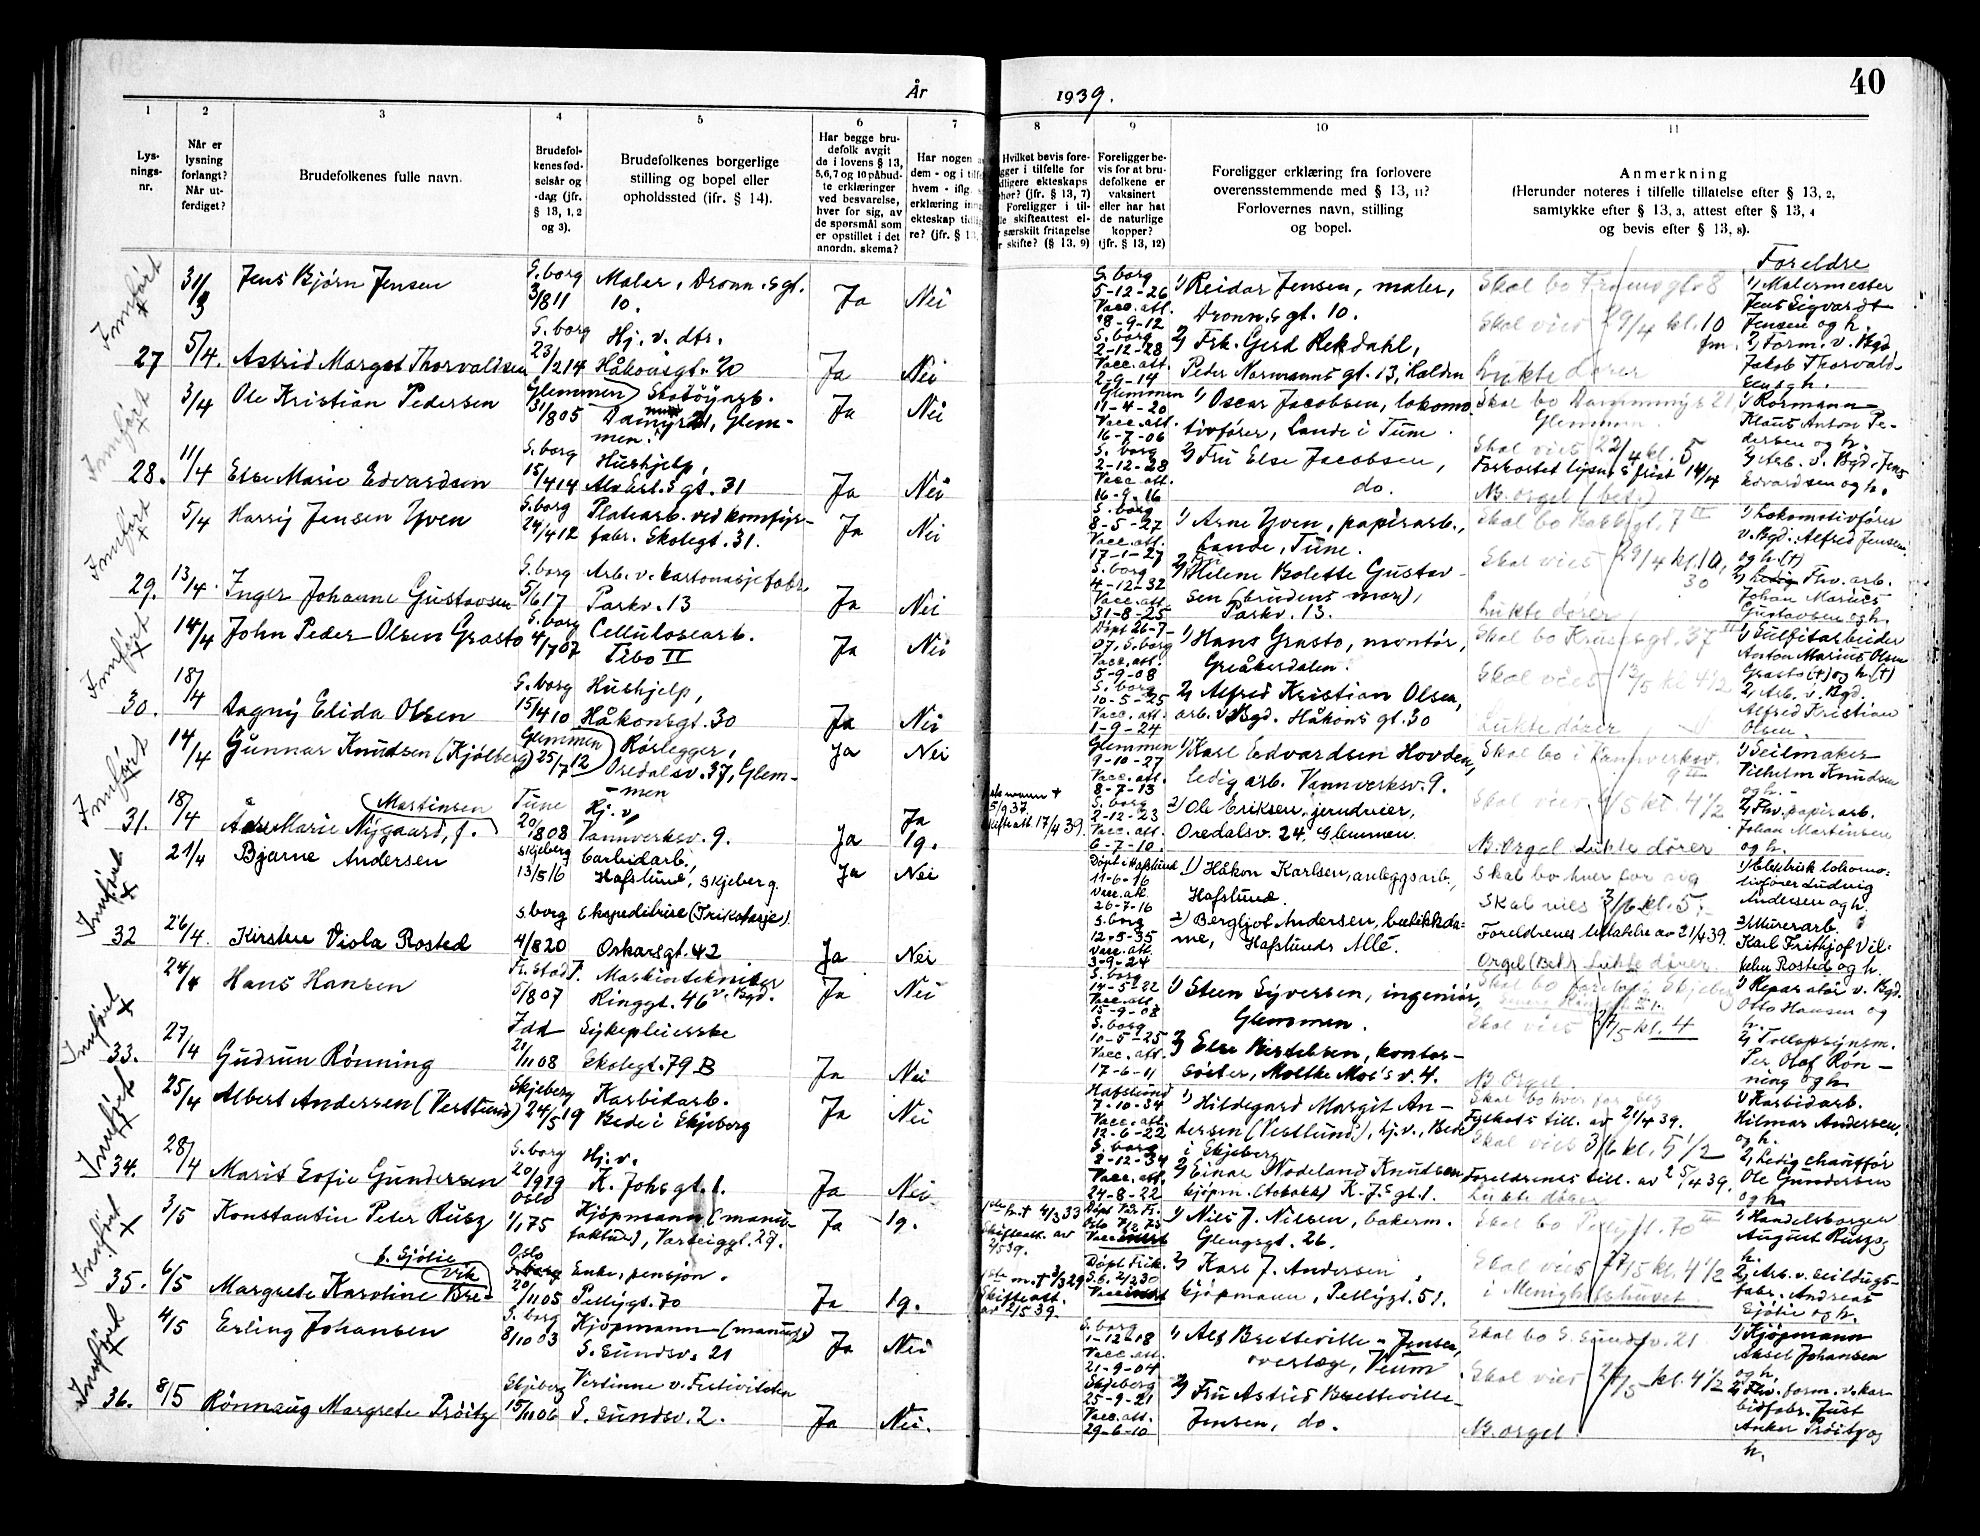 40
År 1939.
1
2
3
4
5
6
7
8
9
10
11
Lys-
nings-
nr.
Når er
lysning
forlangt?
Når ut-
ferdiget?
Brudefolkenes fulle navn.
Brudefol-
kenes fød-
selsår og
-dag (jfr.
§ 13, 1, 2
og 3).
Brudefolkenes borgerlige
stilling og bopel eller
opholdssted (jfr. § 14).
Har begge bru-
defolk avgit
de i lovens § 13,
5,6,7 og 10 påbud-
te erklæringer
ved besvarelse,
hver for sig, av
de spørsmål som
er opstillet i det
anordn. skema?
Har nogen
dem - og i
hvem - iflg.
erklæring
ekteskap
re? (jfr. § 13,
Hvilket bevis fore-
ligger i tilfelle for
ekteskaps
(jfr. § 13, 7)
Foreligger i til-
skifteattest el-
særskilt fritagelse
skifte? (§ 13, 9)
Foreligger be-
vis for at bru-
defolkene er
vaksinert
eller har hat
de naturlige
kopper?
(jfr. § 13, 12)
Foreligger erklæring fra forlovere
overensstemmende med § 13, 11?
Forlovernes navn, stilling
og bopel.
Anmerkning
(Herunder noteres i tilfelle tillatelse efter § 13, 2,
samtykke efter § 13, 3, attest efter § 13, 4
og bevis efter § 13, 8).
Foreldre
Innført
27
31/3
Jens Bjørn Jensen
S.borg
3/8 11
Maler, Dronn.s gt.
10.
Ja
Nei
S.borg
5-12-26
Vacc.att.
18-9-12
1) Reidar Jensen, maler,
Dronn.s gt. 10.
29/4 kl. 10
fm.
1) Malermester
Jens Sigvardt
Jensen og h.
5/4.
Astrid Margot Thorvaldsen
S.borg
23/12 14
Hj. v. dtr.
Håkonsgt. 20
Ja
Nei
S.borg
2-12-28
Vacc.att.
2-9-14
2) Frk. Gerd Rekdahl,
Peder Normanns gt. 13, Halden
Lukte dører
2) Form. v. Bgd
Jakob Thorvald-
sen og h.
Innført
28.
3/4
Ole Kristian Pedersen
Glemmen
31/8 05
Skotøyarb.
21, Glem-
men.
Ja
Nei
Glemmen
11-4-20
Vacc.att.
16-7-06
1) Oscar Jacobsen, lokomo-
tivfører, Lande i Tune.
Skal bo Dammyr 21
Glemmen
Skal vies 22/4 kl. 5
1) Rørmann
Klaus Anton Pe-
dersen og h.
11/4
Else Marie Edvardsen
S.borg
15/4 14
Hushjelp,
31
Ja
Nei
S.borg
2-12-28
Vacc.att.
16-9-16
2) Fru Else Jacobsen,
do.
Forkortet lysn.s frist 14/4
NB. orgel (bet.)
2) Arb. v. Bgd. Jens
Edvardsen og h.
Innført
29.
5/4
Harry Jensen Yven
S.borg
24/4 12
Platearb. ved komfyr-
fabr. Skolegt. 31.
Ja
Nei
S.borg
8-5-27
Vacc.att.
17-1-27
1) Arne Yven, papirarb.,
Lande, Tune.
Skal vies 29/4 kl. 10,
30
1) Lokomotivfører
v. Bgd. Alfred Jensen
og h. (†)
13/4.
Inger Johanne Gustavsen
S.borg
5/6 17
Arb. v. kartonasjefabr.
Parkv. 13
Ja
Nei
S.borg
4-12-32
Vacc.att.
31-8-25
2) Helene Bolette Gustav-
sen (brudens mor),
Parkv. 13.
Lukte dører
Fhv. arb.
Johan Marius
Gustavsen og h.
Innført
30.
14/4
John Peder Olsen Grasto
S.borg
4/7 07
Cellulosearb.
Tibo II
Ja
Nei
Døpt 26-7-
07, S.borg
Vacc.att.
5-9-08
1) Hans Grasto, montør,
Greåkerdalen.
Skal vies 13/5 kl 4 1/2
1) Sulfitarbeider
Anton Marius Olsen
Grasto (†) og h. (†)
18/4
Dagny Elida Olsen
S.borg
15/4 10
Hushjelp,
Håkonsgt. 30
Ja
Nei
S.borg
10-5-25
Vacc.att.
1-9-24
2) Alfred Kristian Olsen,
arb. v. Bgd. Håkons gt. 30
Lukte dører
2) Arb. v. Bgd.
Alfred Kristian
Olsen.
Innført
31.
14/4
Gunnar Knudsen (Kjølberg)
Glemmen
25/7 12
Rørlegger,
Oredalsv. 37, Glem-
men
Ja
Nei
Glemmen
9-10-27
Vacc.att.
8-7-13
1) Karl Edvardsen Hovden,
ledig arb. Vannverksv. 9.
Skal bo i Vannverksv.
9 II
1) Seilmaker
Vilhelm Knudsen
og h.
18/4
Åse Marie Nygaard, f.
Martinsen
Tune
20/8 08
Hj. v,
Vannverksv. 9.
Ja
Ja
1g.
5/9 37
17/4 39.
S.borg
2-12-23
Vacc.att.
6-7-10.
2) Ole Eriksen, jerndreier,
Oredalsv. 24, Glemmen.
Skal vies 6/5 kl. 4 1/2
NB. Orgel Lukte dører
2) Fhv. papirarb.
Johan Martinsen
og h.
Innført
32
21/4
Bjarne Andersen
Skjeberg
13/5 16
Carbidarb.,
Hafslund, Skjeberg.
Ja
Nei
Døpt i Hafslund
11-6-16
Vacc.att.
26-7-16
1) Håkon Karlsen, anleggsarb.,
Hafslund.
Skal bo hver for seg
Skal vies 3/6 kl. 5.
1) Elektrisk lokomo-
tivfører Ludvig
Andersen og h.
26/4.
Kirsten Viola Rosted
S.borg
4/8 20
Ekspeditrise (Trikotasje)
Oskarsgt. 42
Ja
Nei
S.borg
12-5-35
Vacc.att.
3-9-24
2) Bergljot Andersen, butikkda-
me, Hafslunds Allé.
Foreldrenes tillatelse av 21/4 39.
Orgel (Bet.) Lukte dører
2) Murerarb.
Karl Frithjof Vil-
helm Rosted og h.
Innført
33.
24/4
Hans Hansen
Fr.stad
5/8 07
Maskintekniker
Ringgt. 46 v. Bgd.
Ja
Nei
S.borg
14-5-22
Vacc.att.
15-9-08
1) Steen Syversen, ingeniør,
Glemmen.
Skal vies 27/5 kl. 4
1) Reparatør v. Bgd.
Otto Hansen og
h.
27/4
Gudrun Rønning
Idd
21/11 08
Sykepleierske
Skolegt. 79 B
Ja
Nei
S.borg
10-5-25
Vacc.att.
17-6-11
2) Else Bertelsen, kontor-
søster, Moltke Moe's v. 4.
NB. Orgel.
2) Tolloppsynsm.
Per Olaf Røn-
ning og h.
Innført
34.
25/4
Albert Andersen (Vestlund)
Skjeberg
24/5 19
Karbidarb.
Bede i Skjeberg
Ja
Nei
Hafslund
7-10-34
Vacc.att.
12-6-22
1) Hildegard Margit An-
dersen (Vestlund), hj.v., Bede
i Skjeberg
Skal bo hver for seg
Fylkets till. av 21/4 39.
Skal vies 3/6 kl. 5 1/2
1) Karbidarb.
Hilmar Andersen,
og h.
28/4
Marit Sofie Gundersen
S.borg
20/9 19
Hj. v.
K. Johs gt. 1.
Ja
Nei
S.borg
2-12-34
Vacc.att.
24-8-22
2) Einar Nodeland Knutsen,
kjøpm. (tobakk) K. J.s gt. 1.
Foreldrenes till. av 25/4 39.
Lukte dører
2) Ledig chauffør
Ole Gundersen
og h.
Innført
35.
3/5
Konstantin Peter Rusz
Oslo
1/1 75
Kjøpmann (manu-
faktur), Varteiggt. 29.
Ja
1g.
4/3 33
Skifteatt. av
2/5 39.
1) Niels J. Nilsen, bakerm.
Glengsgt. 26.
Skal vies 27/5 kl. 4 1/2
1) Handelsborger
August Rusz og
h.
6/5
Margrete Karoline Bre-
vik
f. Sjølie
Oslo
20/11 05
Enke, pensjon.
Pellygt. 70
Ja
1g.
3/3 29
Skifteatt.
av 2/5 39.
Døpt Frik.
S.b. 2/2 30
Vaccinert
2) Karl J. Andersen,
kjøpmann, Pellygt. 51.
i Menighetshuset
2) Arb. v. seildugs-
fabr. Andreas
Sjølie og h.
Innført
36.
4/5
Erling Johansen
S.borg
8/10 03
Kjøpmann (manuf.)
S. Sundsv. 21
Ja
Nei
S.borg
1-12-18
Vacc.att.
21-9-04
1) Alf Bretteville-Jensen,
overlæge, Veum
Skal bo S. Sundsv. 21
Skal vies 27/5 kl. 4 1/2
1) Kjøpmann
Aksel Johansen
og h.
8/5
Rønnaug Margrete Trøite
Skjeberg
15/11 06
Vertinne v. Festiviteten
S. Sundsv. 2.
Ja
Nei.
Skjeberg
25-9-21
Vacc.att.
29-6-10
2) Fru Astrid Bretteville-
Jensen, do.
NB. orgel
2) Fhv. form. v. kar-
bidfabr. Just
Anker Trøite og
h.